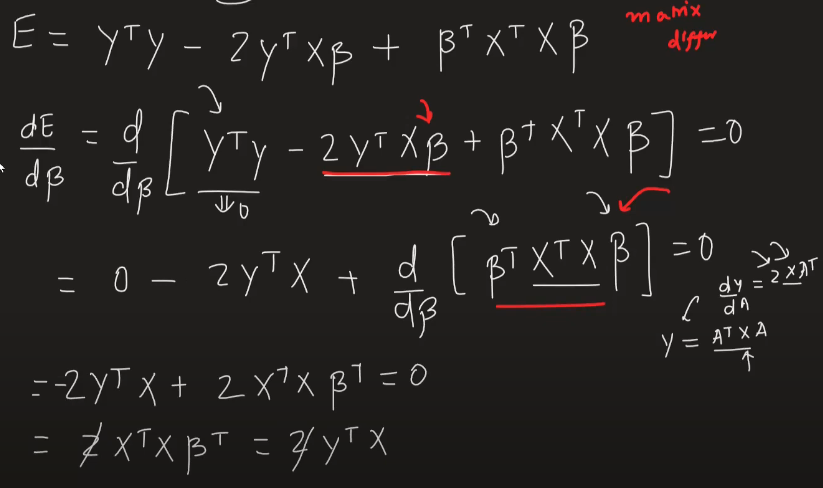 E = Y^T Y - 2 Y^T X β + β^T X^T X β
matrix
differ
dE/dβ = d/dβ [ Y^T Y - 2 Y^T X β + β^T X^T X β ] = 0
⇓ 0
= 0 - 2 Y^T X + d/dβ [ β^T X^T X β ] = 0
dy/dA = 2 X A^T
Y = A^T X A
= -2 Y^T X + 2 X^T X β^T = 0
= 2 X^T X β^T = 2 Y^T X